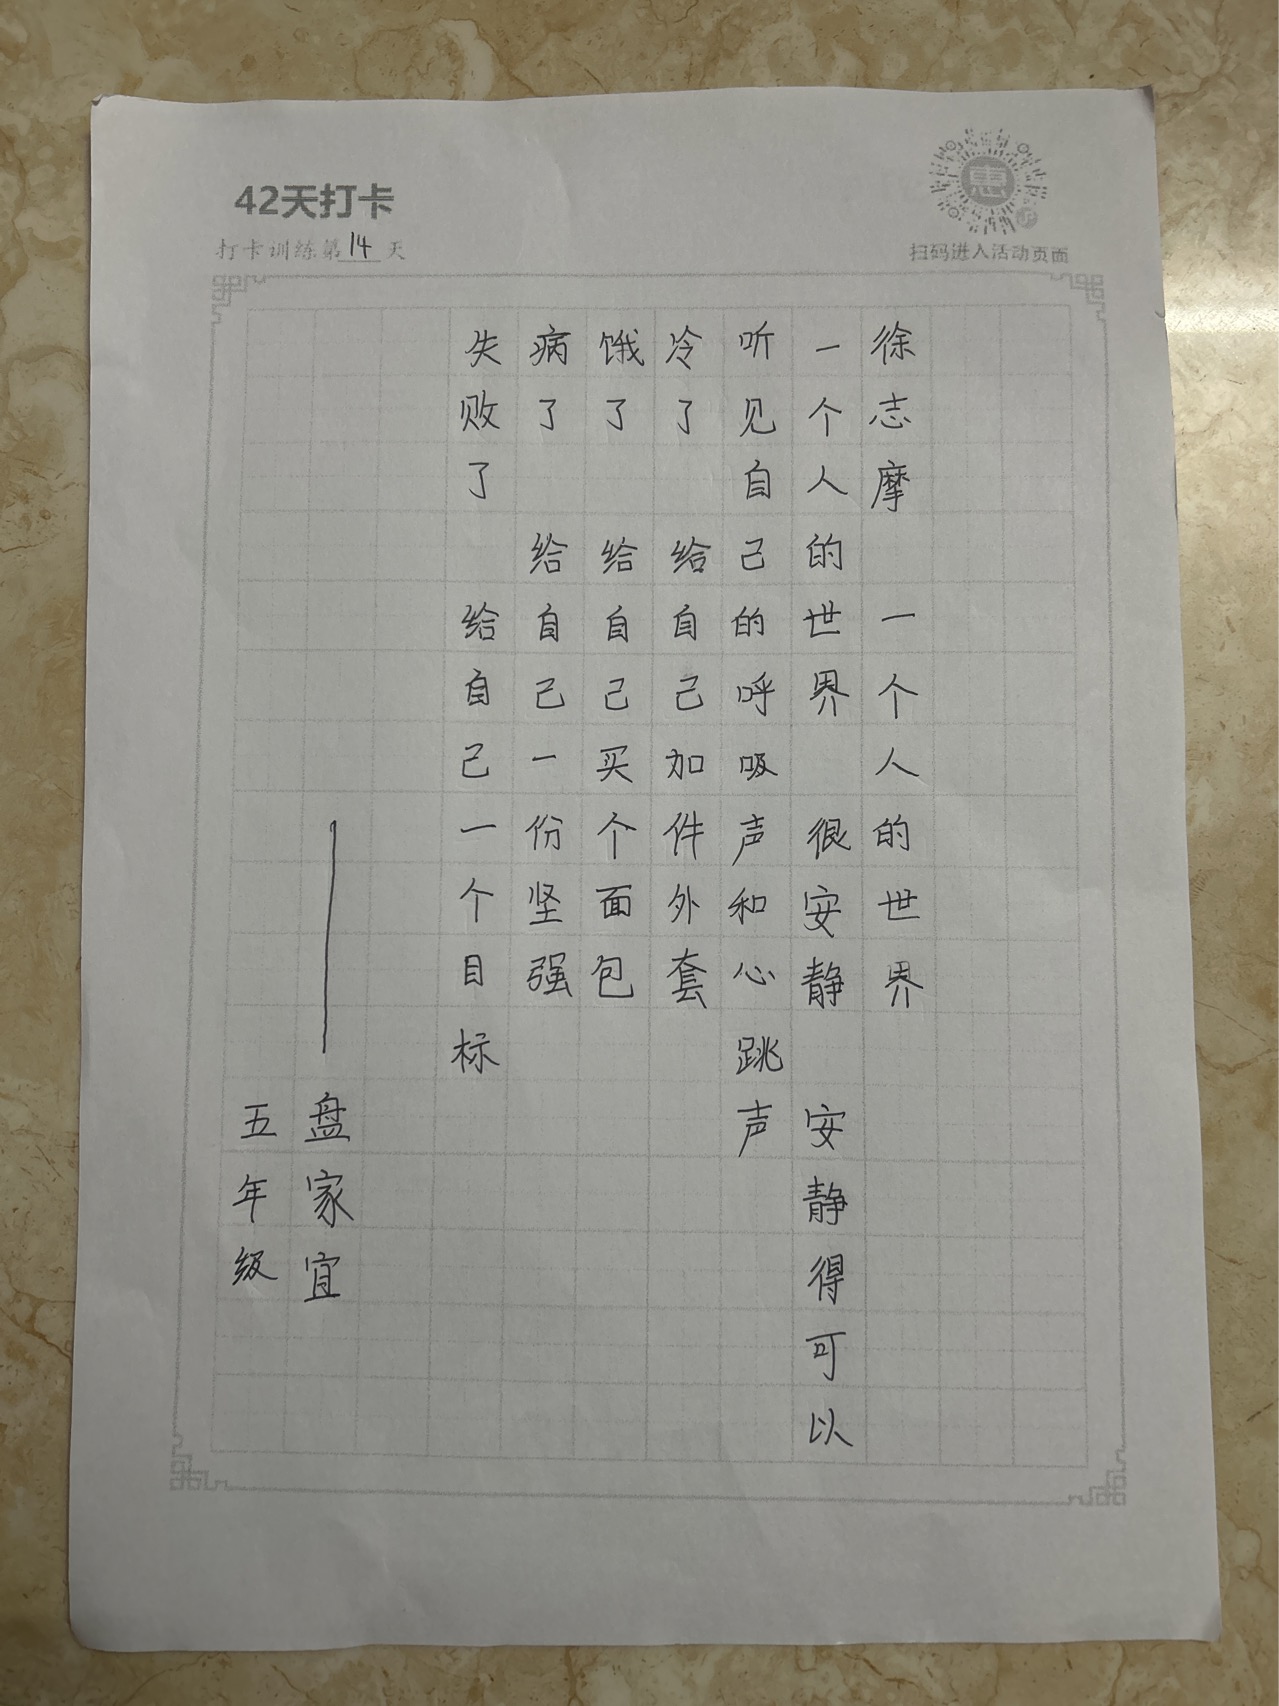 42天打卡
打卡训练第14天
扫码进入活动页面
惠
徐志摩 一个人的世界
一个人的世界 很安静 安静得可以
听见自己的呼吸声和心跳声
冷了 给自己加件外套
饿了 给自己买个面包
病了 给自己一份坚强
失败了 给自己一个目标
——盘家宜
五年级